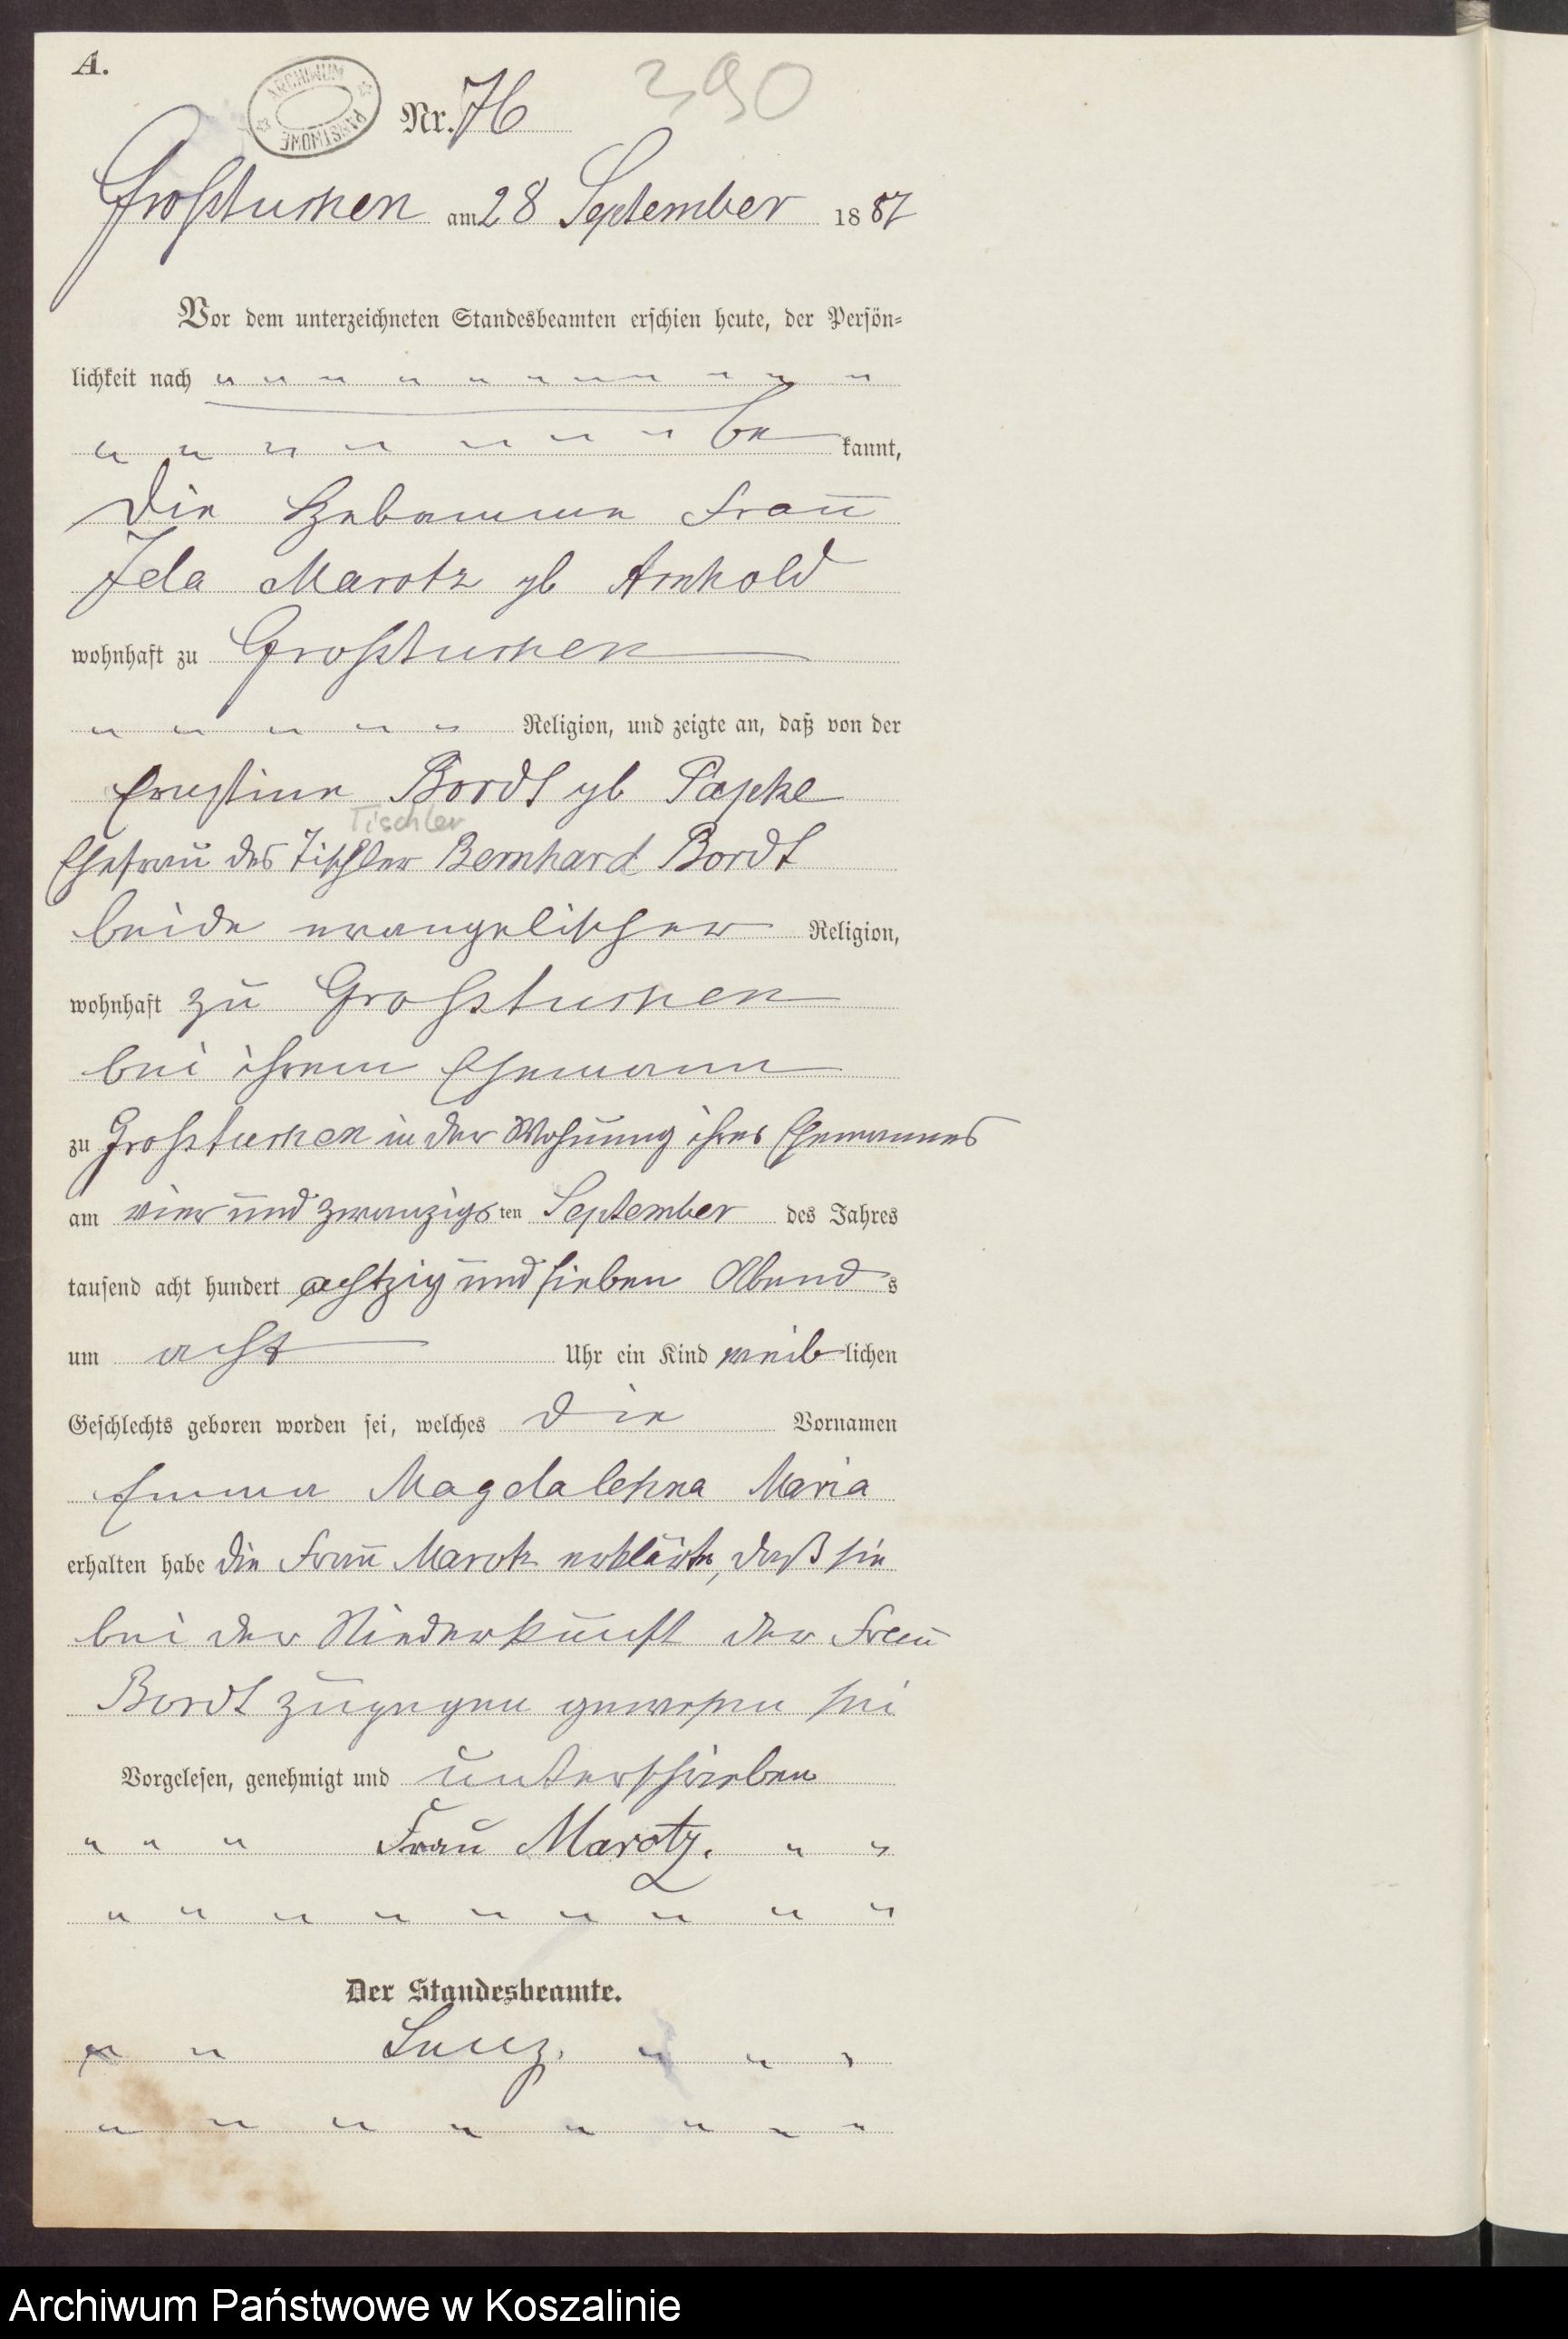 A.
ARCHIWUM PAŃSTWOWE
Nr. 76
390
Großtuchen am 28 September 1887
Vor dem unterzeichneten Standesbeamten erschien heute, der Persön-
lichkeit nach
be kannt,
die Hebamme Frau
Ida Marotz gb Arnhold
wohnhaft zu Großtuchen
Religion, und zeigte an, daß von der
Ernstine Bordt gb Papke
Tischler
Ehefrau des Tischler Bernhard Bordt
beide evangelischer Religion,
wohnhaft zu Großtuchen
bei ihrem Ehemann
zu Großtuchen in der Wohnung ihres Ehemannes
am vier und zwanzigs ten September des Jahres
tausend acht hundert achtzig und sieben Abend s
um acht Uhr ein Kind weib lichen
Geschlechts geboren worden sei, welches die Vornamen
Emma Magdalehna Maria
erhalten habe die Frau Marotz erklärte, daß sie
bei der Niederkunft der Frau
Bordt zugegen gewesen sei
Vorgelesen, genehmigt und unterschrieben
Frau Marotz.
Der Standesbeamte.
Archiwum Państwowe w Koszalinie